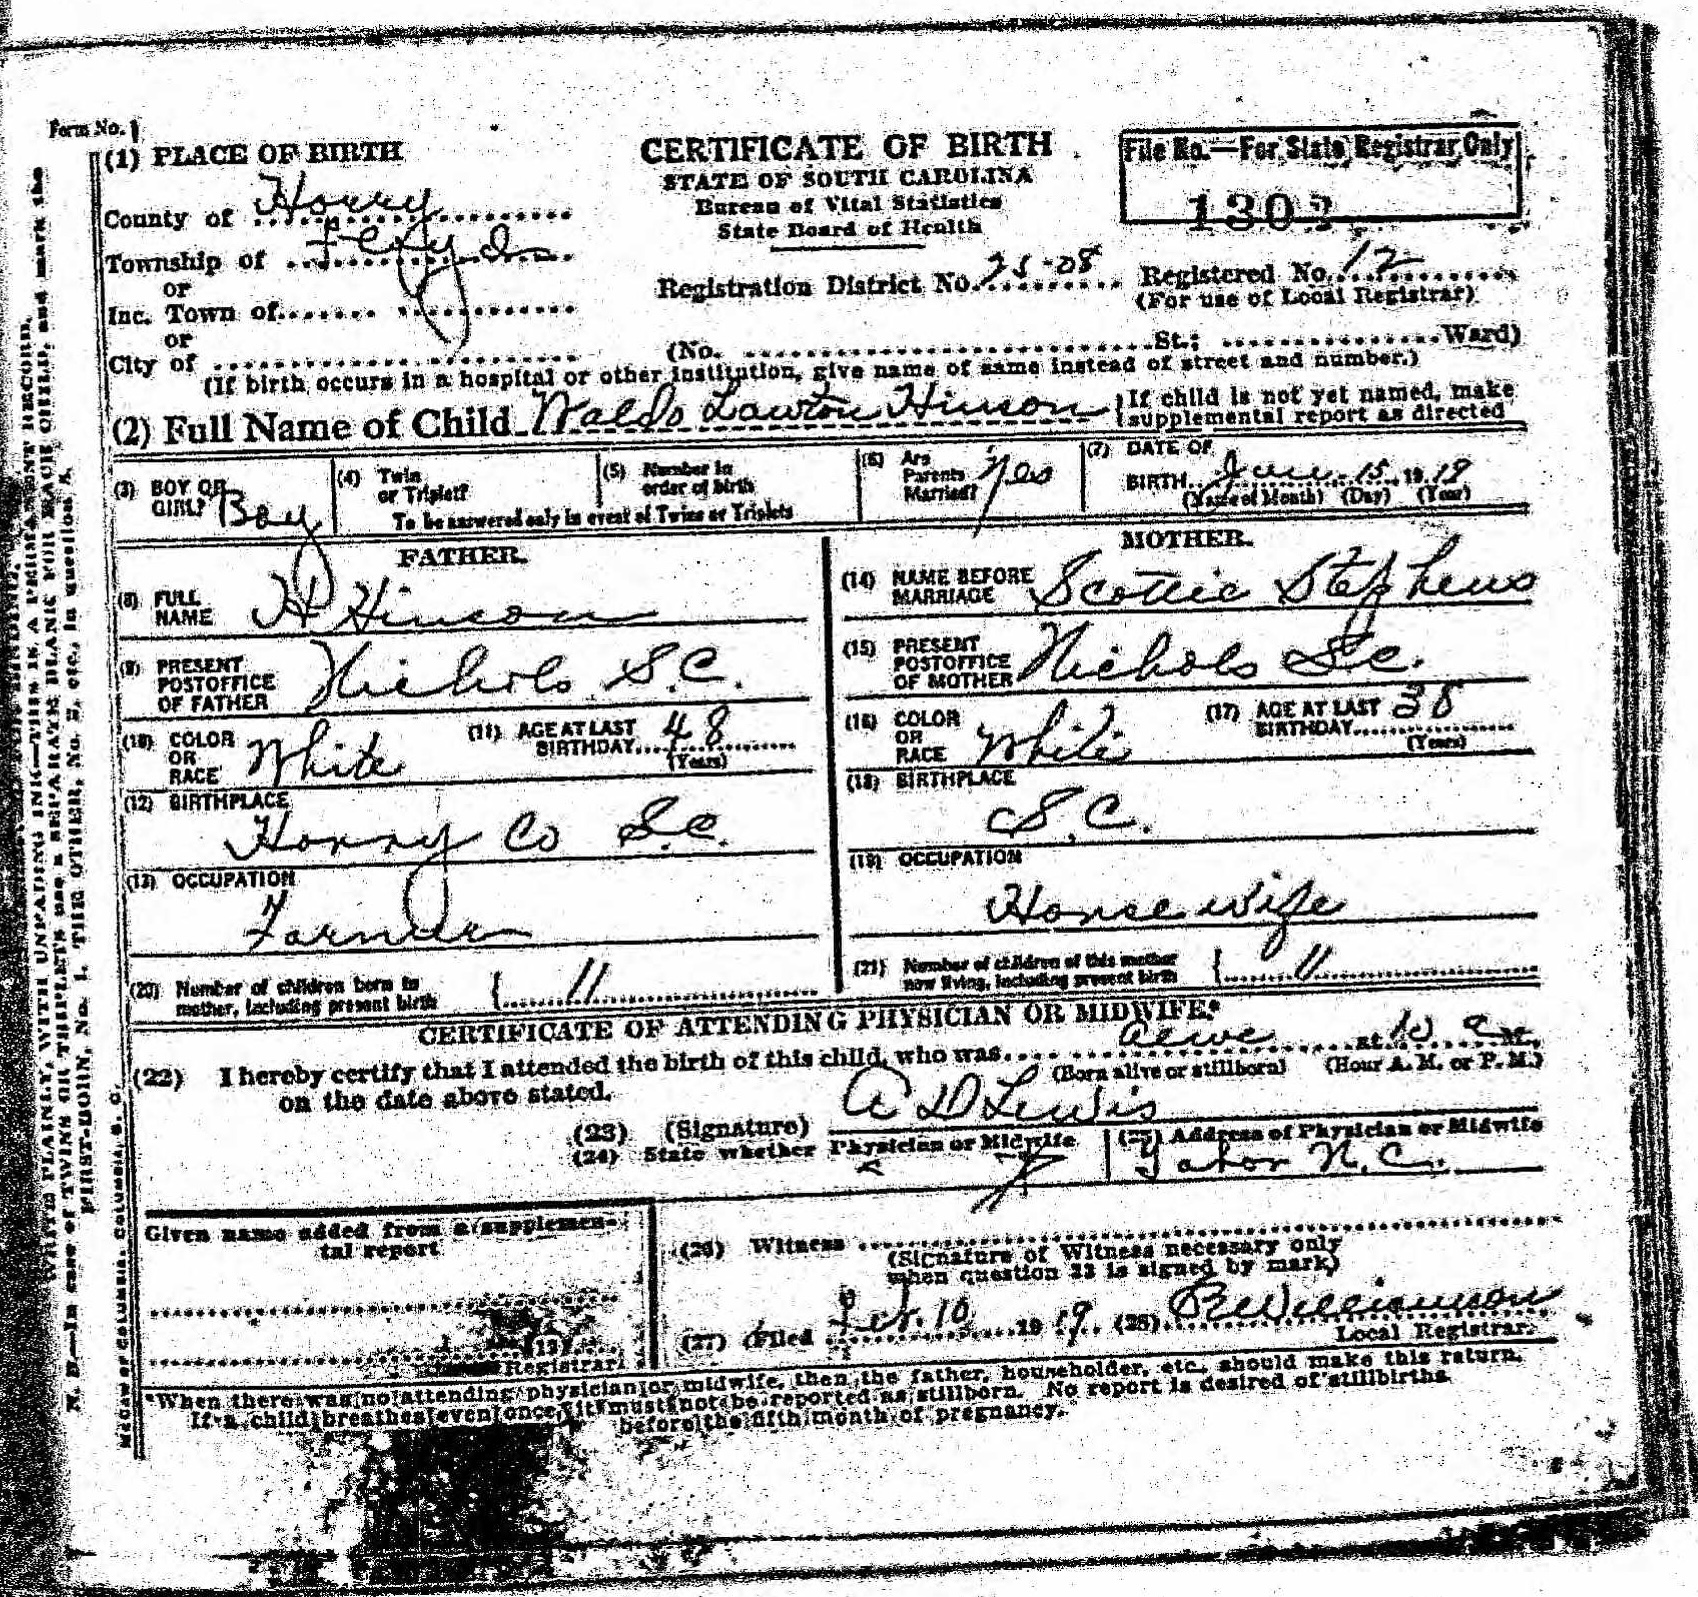 Form No. 1
(1) PLACE OF BIRTH
County of Horry
Township of Floyds
or
Inc. Town of
or
City of
CERTIFICATE OF BIRTH
STATE OF SOUTH CAROLINA
Bureau of Vital Statistics
State Board of Health
File No.—For State Registrar Only
1303
Registration District No. 25-08 Registered No. 12
(For use of Local Registrar)
(No. St.; Ward)
(If birth occurs in a hospital or other institution, give name of same instead of street and number.)
(2) Full Name of Child Waldo Lawton Hinson { If child is not yet named, make
supplemental report as directed
(3) BOY OR GIRL? Boy
(4) Twin or Triplet?
(5) Number in order of birth
To be answered only in event of Twins or Triplets
(6) Are Parents Married? Yes
(7) DATE OF
BIRTH 15, 1919
(Name of Month) (Day) (Year)
FATHER.
(8) FULL NAME H Hinson
(9) PRESENT POSTOFFICE OF FATHER Nichols S.C.
(10) COLOR OR RACE White
(11) AGE AT LAST BIRTHDAY 48
(Years)
(12) BIRTHPLACE
Horry Co S.C.
(13) OCCUPATION
Farmer
(20) Number of children born to
mother, including present birth { 11
MOTHER.
(14) NAME BEFORE MARRIAGE Scottie Stephens
(15) PRESENT POSTOFFICE OF MOTHER Nichols S.C.
(16) COLOR OR RACE White
(17) AGE AT LAST BIRTHDAY 38
(Years)
(18) BIRTHPLACE
S.C.
(19) OCCUPATION
House wife
(21) Number of children of this mother
now living, including present birth { 11
CERTIFICATE OF ATTENDING PHYSICIAN OR MIDWIFE*
(22) I hereby certify that I attended the birth of this child, who was alive at 10 a M.
(Born alive or stillborn) (Hour A. M. or P. M.)
on the date above stated.
(23) (Signature) A D Lewis
(24) State whether Physician or Midwife
(25) Address of Physician or Midwife
Tabor N.C.
Given name added from a supplemen-
tal report
Registrar
(26) Witness
(Signature of Witness necessary only
when question 23 is signed by mark)
(27) Filed 10 1919 (28) Williamson
Local Registrar.
*When there was no attending physician or midwife, then the father, householder, etc., should make this return.
If a child breathes even once, it must not be reported as stillborn. No report is desired of stillbirths
before the fifth month of pregnancy.
WRITE PLAINLY, WITH UNFADING INK—THIS IS A PERMANENT RECORD.
N. B.—In case of TWINS OR TRIPLETS use a SEPARATE BLANK FOR EACH CHILD, and mark the
FIRST-BORN, No. 1, THE OTHER, No. 2, etc., in question 5.
McCaw of Columbia, Columbia, S. C.